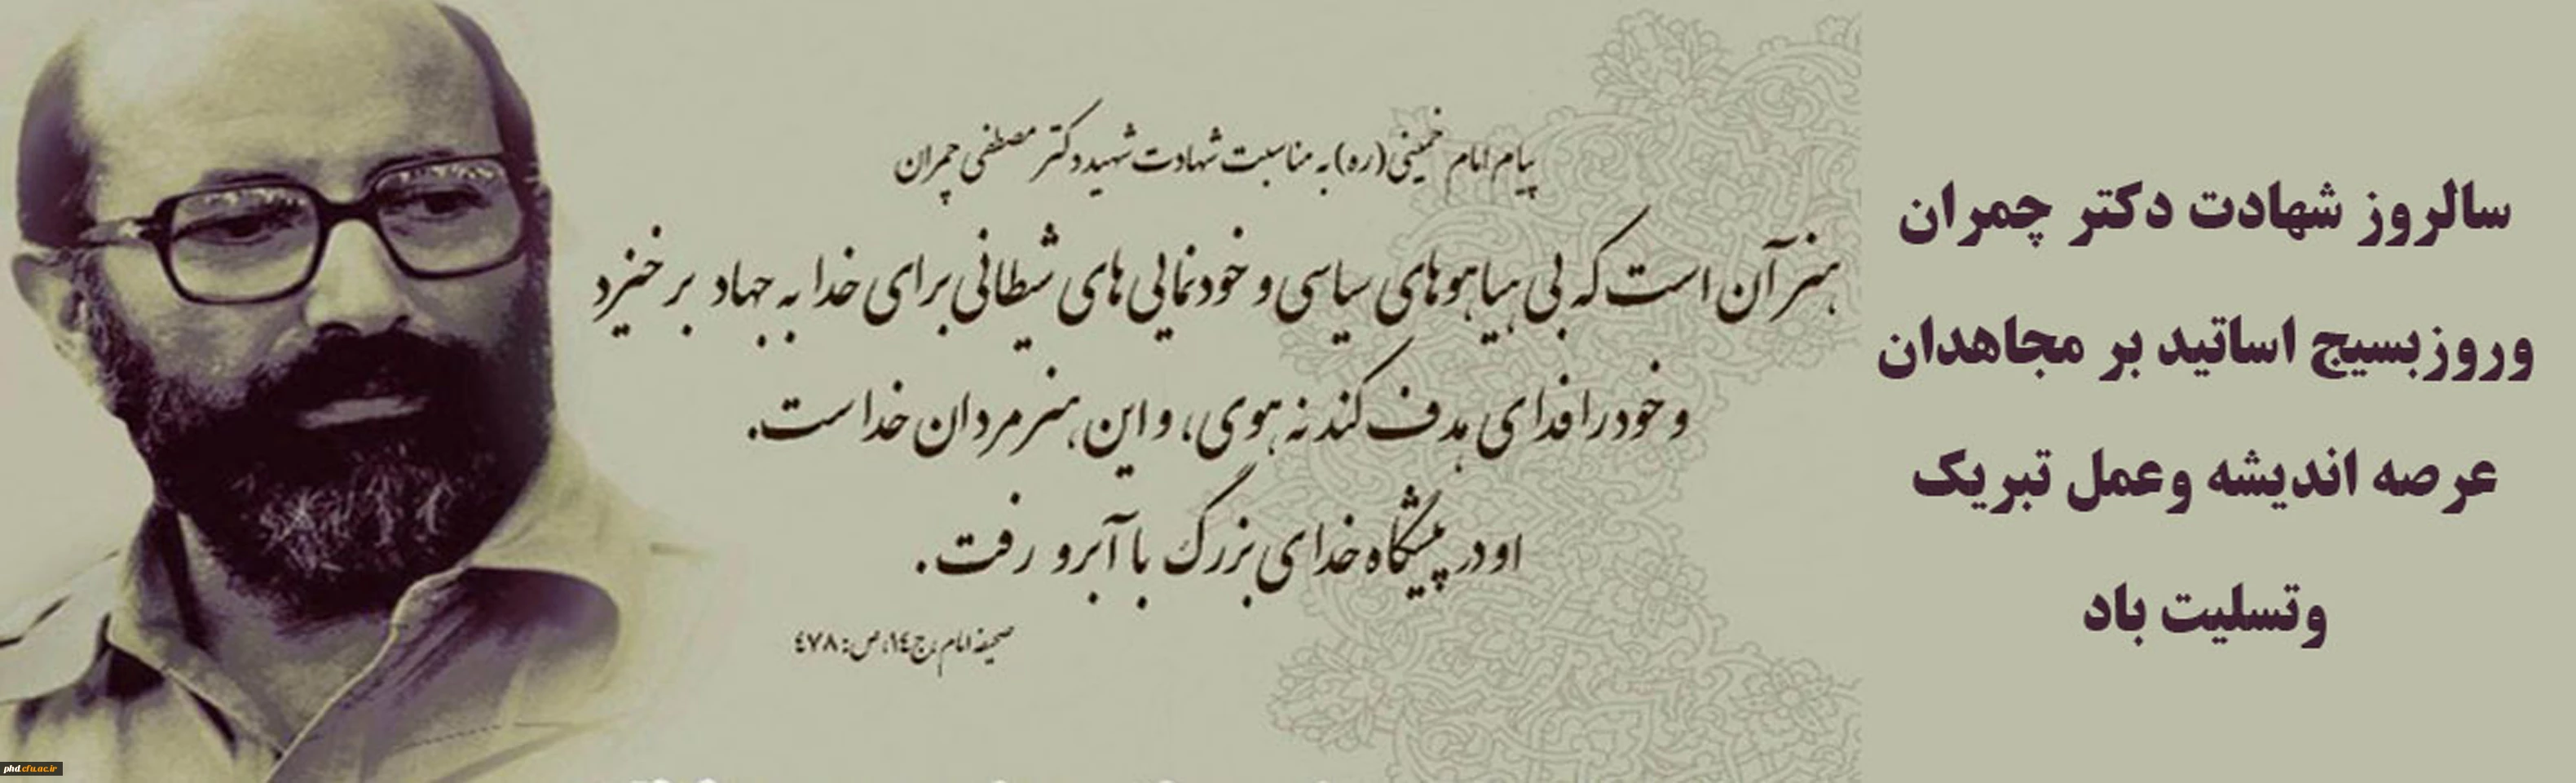 سالروز شهادت دکتر چمران
وروزبسیج اساتید بر مجاهدان
عرصه اندیشه وعمل تبریک
وتسلیت باد
پیام امام خمینی(ره) به مناسبت شهادت شهید دکتر مصطفی چمران
هنر آن است که بی هیاهوهای سیاسی و خودنمایی های شیطانی برای خدا به جهاد برخیزد
و خود را فدای هدف کند نه هوی، و این هنر مردان خداست.
او در پیشگاه خدای بزرگ با آبرو رفت.
صحیفه امام، ج١٤، ص: ٤٧٨
phd.cfu.ac.ir